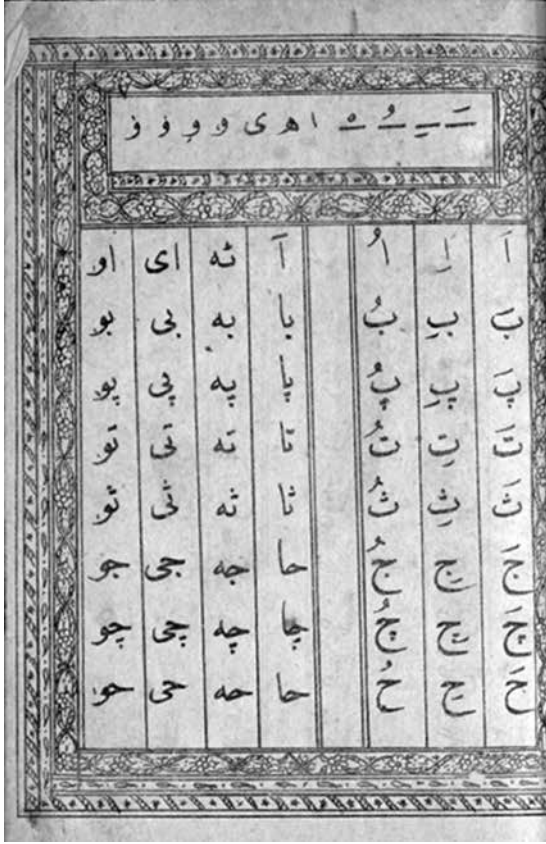 ـَ ـِ ـُ ـْ ا ه ی
اَ اِ اُ آ ئه ای او
بَ بِ بُ با به بی بو
پَ پِ پُ پا په پی پو
تَ تِ تُ تا ته تی تو
ثَ ثِ ثُ ثا ثه ثی ثو
جَ جِ جُ حا جه جی جو
چَ چِ چُ چا چه چی چو
حَ حِ حُ حا حه حی حو